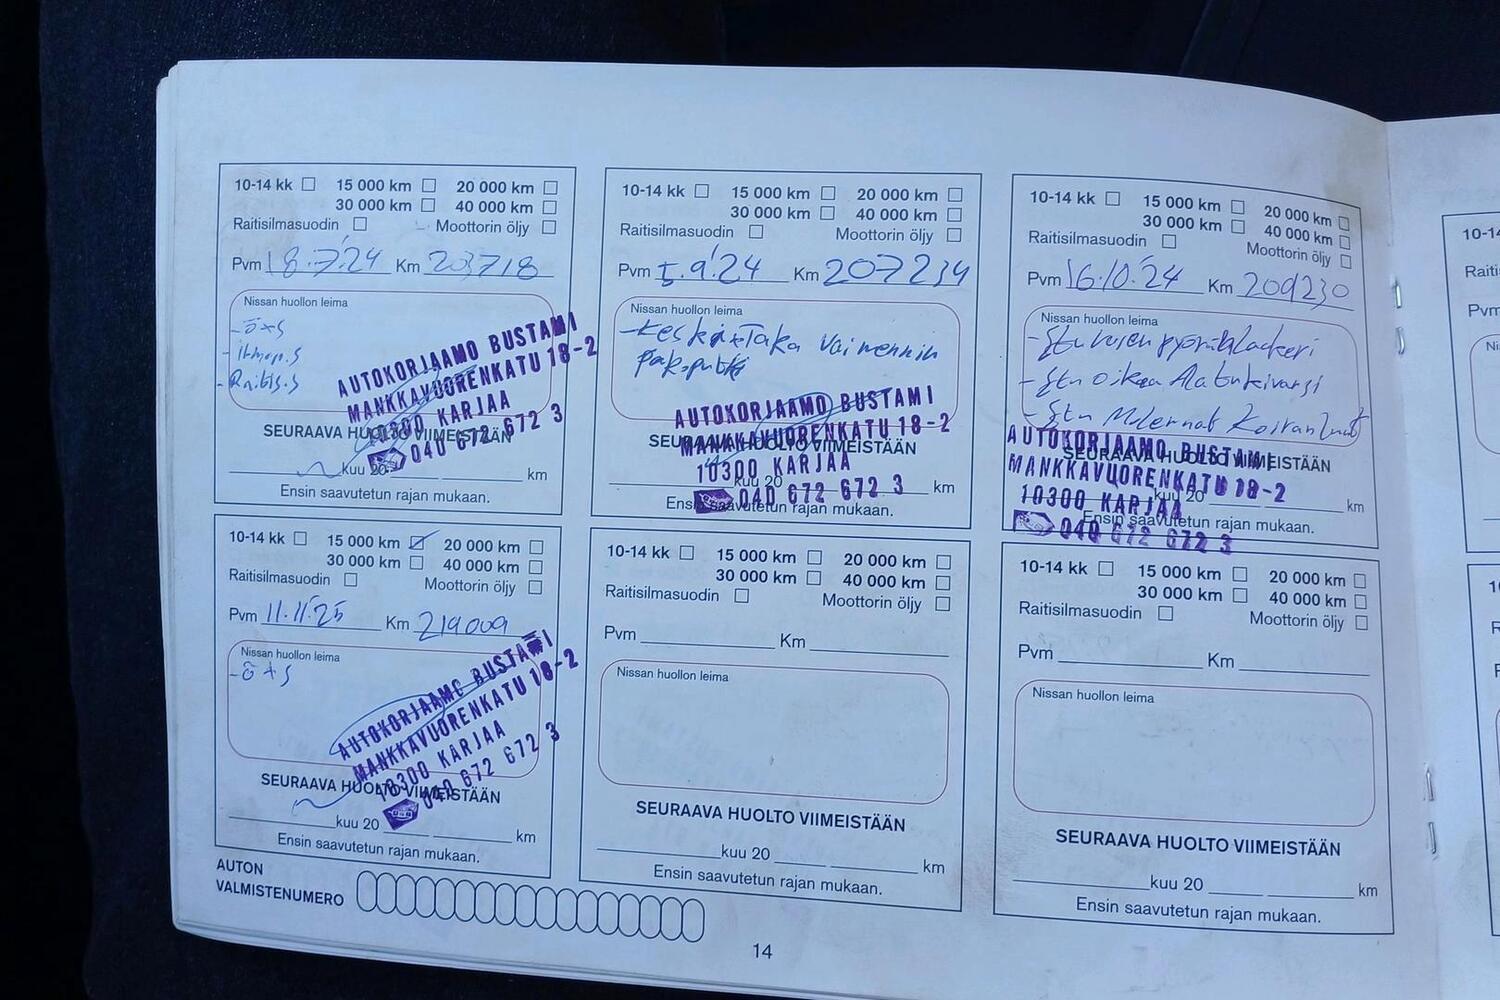 10-14 kk 15 000 km 20 000 km
30 000 km 40 000 km
Raitisilmasuodin Moottorin öljy
Pvm 18.7.'24 Km 203718
Nissan huollon leima
-ö+s
-ilman.s
-Raitis.s
AUTOKORJAAMO BUSTAMI
MANKKAVUORENKATU 18-2
10300 KARJAA
040 672 672 3
SEURAAVA HUOLTO VIIMEISTÄÄN
kuu 20 km
Ensin saavutetun rajan mukaan.
10-14 kk 15 000 km 20 000 km
30 000 km 40 000 km
Raitisilmasuodin Moottorin öljy
Pvm 5.9.'24 Km 207234
Nissan huollon leima
-Keski+Taka vaimennin
pakoputki
AUTOKORJAAMO BUSTAMI
MANKKAVUORENKATU 18-2
10300 KARJAA
040 672 672 3
SEURAAVA HUOLTO VIIMEISTÄÄN
kuu 20 km
Ensin saavutetun rajan mukaan.
10-14 kk 15 000 km 20 000 km
30 000 km 40 000 km
Raitisilmasuodin Moottorin öljy
Pvm 16.10.'24 Km 209230
Nissan huollon leima
-Etu vasen pyöränlaakeri
-Etu oikea Alatukivarsi
-Etu Molemmat Koiranluut
AUTOKORJAAMO BUSTAMI
MANKKAVUORENKATU 18-2
10300 KARJAA
040 672 672 3
SEURAAVA HUOLTO VIIMEISTÄÄN
kuu 20 km
Ensin saavutetun rajan mukaan.
10-14 kk 15 000 km 20 000 km
30 000 km 40 000 km
Raitisilmasuodin Moottorin öljy
Pvm 11.11.'25 Km 219009
Nissan huollon leima
-ö+s
AUTOKORJAAMO BUSTAMI
MANKKAVUORENKATU 18-2
10300 KARJAA
040 672 672 3
SEURAAVA HUOLTO VIIMEISTÄÄN
kuu 20 km
Ensin saavutetun rajan mukaan.
10-14 kk 15 000 km 20 000 km
30 000 km 40 000 km
Raitisilmasuodin Moottorin öljy
Pvm Km
Nissan huollon leima
SEURAAVA HUOLTO VIIMEISTÄÄN
kuu 20 km
Ensin saavutetun rajan mukaan.
10-14 kk 15 000 km 20 000 km
30 000 km 40 000 km
Raitisilmasuodin Moottorin öljy
Pvm Km
Nissan huollon leima
SEURAAVA HUOLTO VIIMEISTÄÄN
kuu 20 km
Ensin saavutetun rajan mukaan.
AUTON
VALMISTENUMERO
14